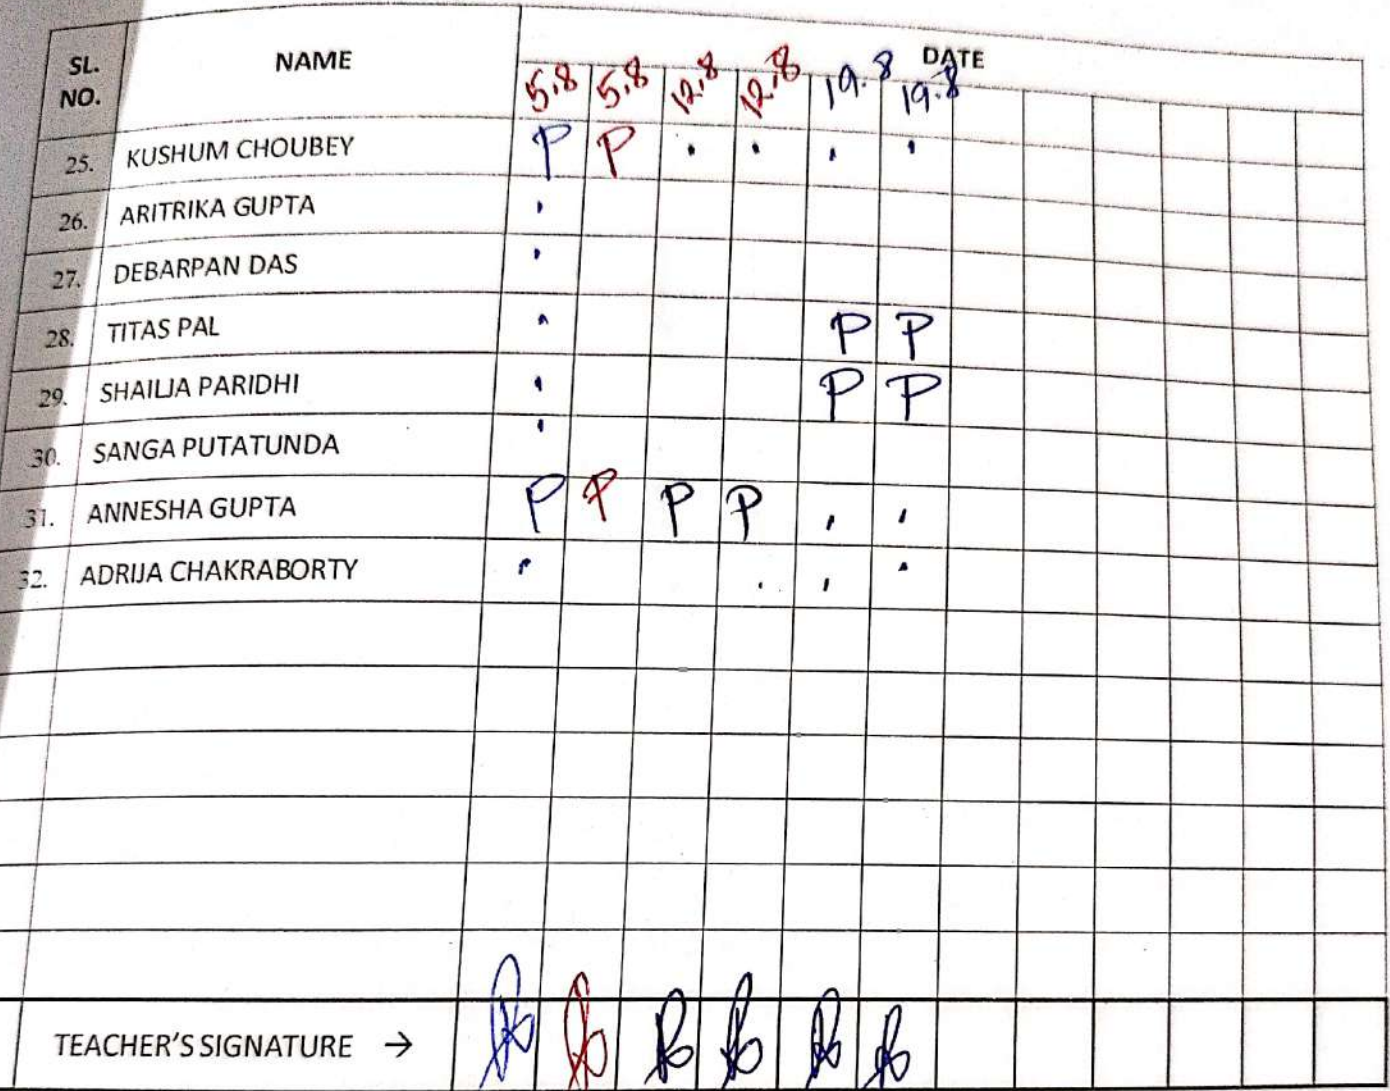 SL. NO. NAME DATE
5.8 5.8 12.8 12.8 19.8 19.8
25. KUSHUM CHOUBEY P P . . . .
26. ARITRIKA GUPTA .
27. DEBARPAN DAS .
28. TITAS PAL . P P
29. SHAILJA PARIDHI . P P
30. SANGA PUTATUNDA .
31. ANNESHA GUPTA P P P P . .
32. ADRIJA CHAKRABORTY . . . .
TEACHER'S SIGNATURE →